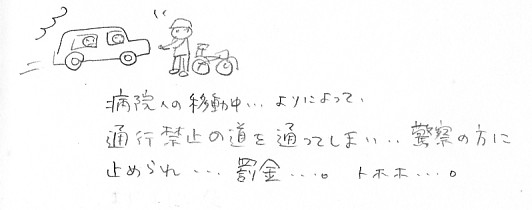 病院への移動中… よりによって、
通行禁止の道を通ってしまい‥警察の方に
止められ…罰金…。トホホ…。